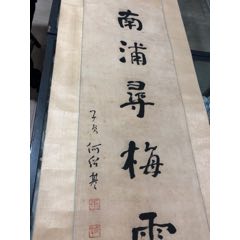 南浦尋梅雪
子貞何紹基